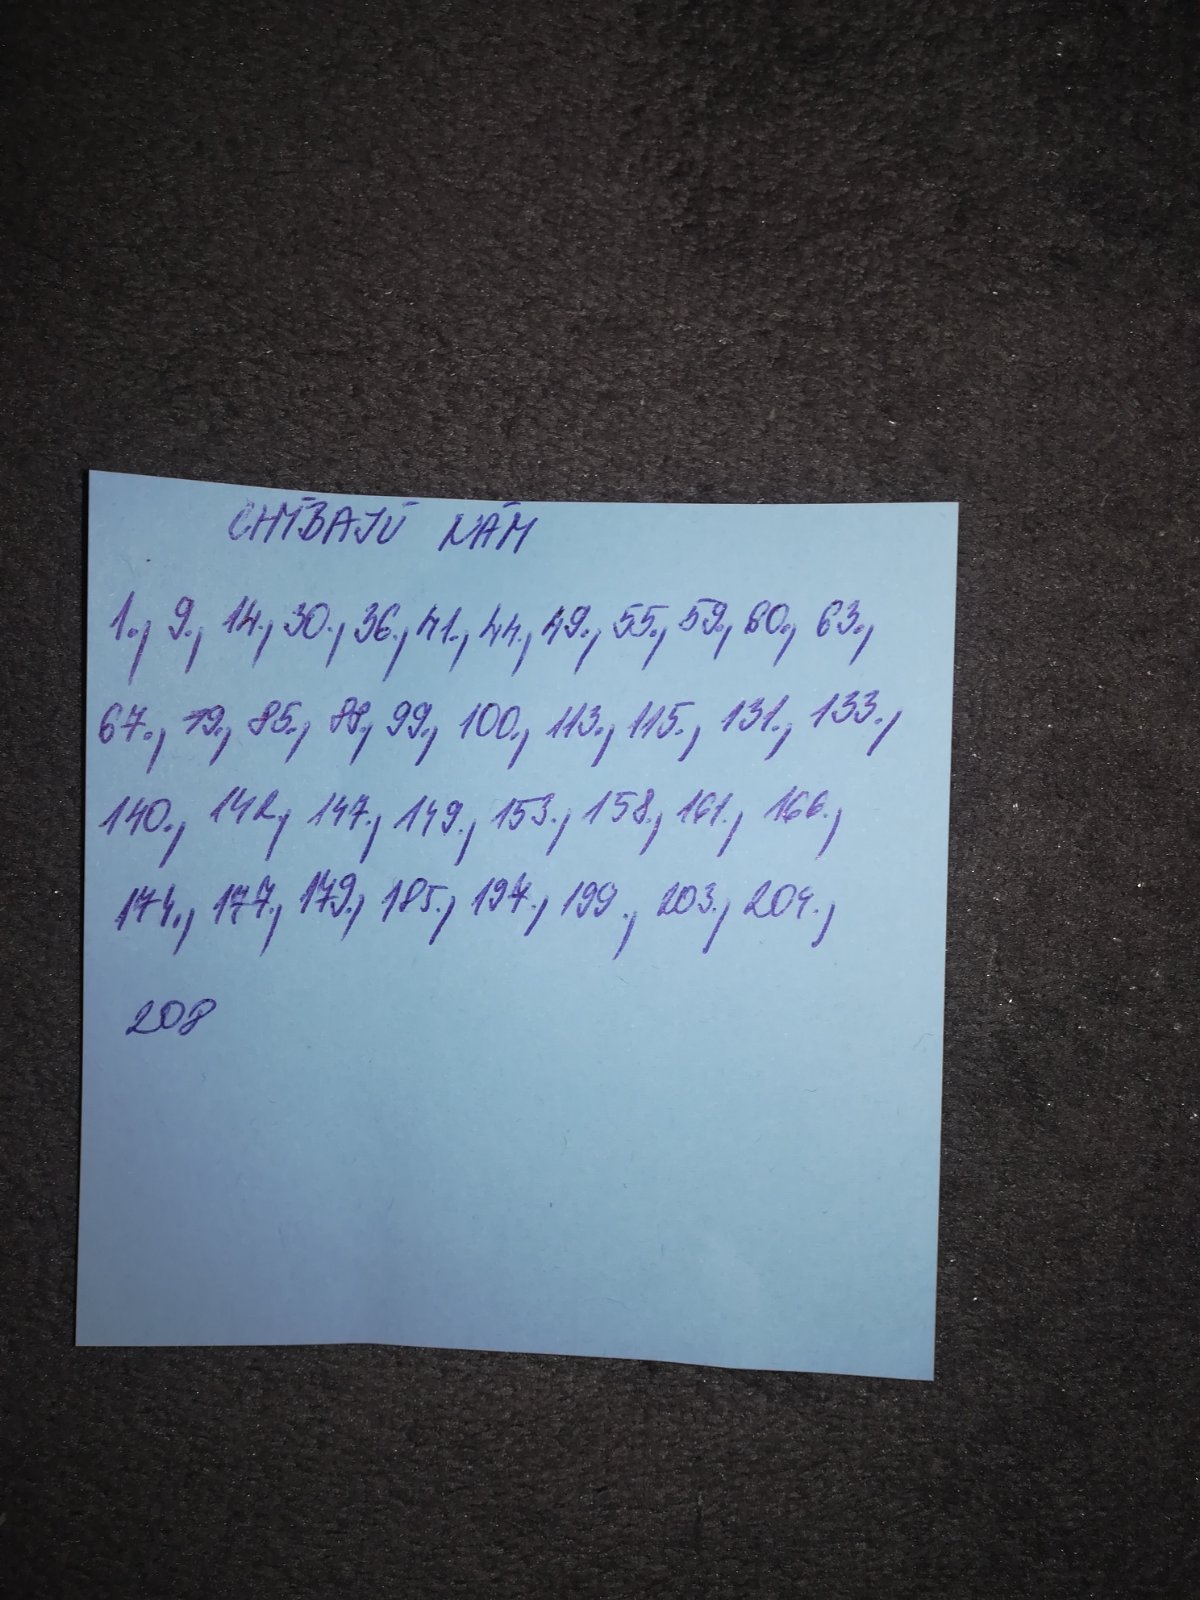 CHÝBAJÚ NÁM
1., 9., 14., 30., 36., 41., 44., 49., 55., 59., 60., 63.,
67., 79., 85., 88., 99., 100., 113., 115., 131., 133.,
140., 142., 147., 149., 153., 158., 161., 166.,
174., 177., 179., 185., 197., 199., 203., 204.,
208